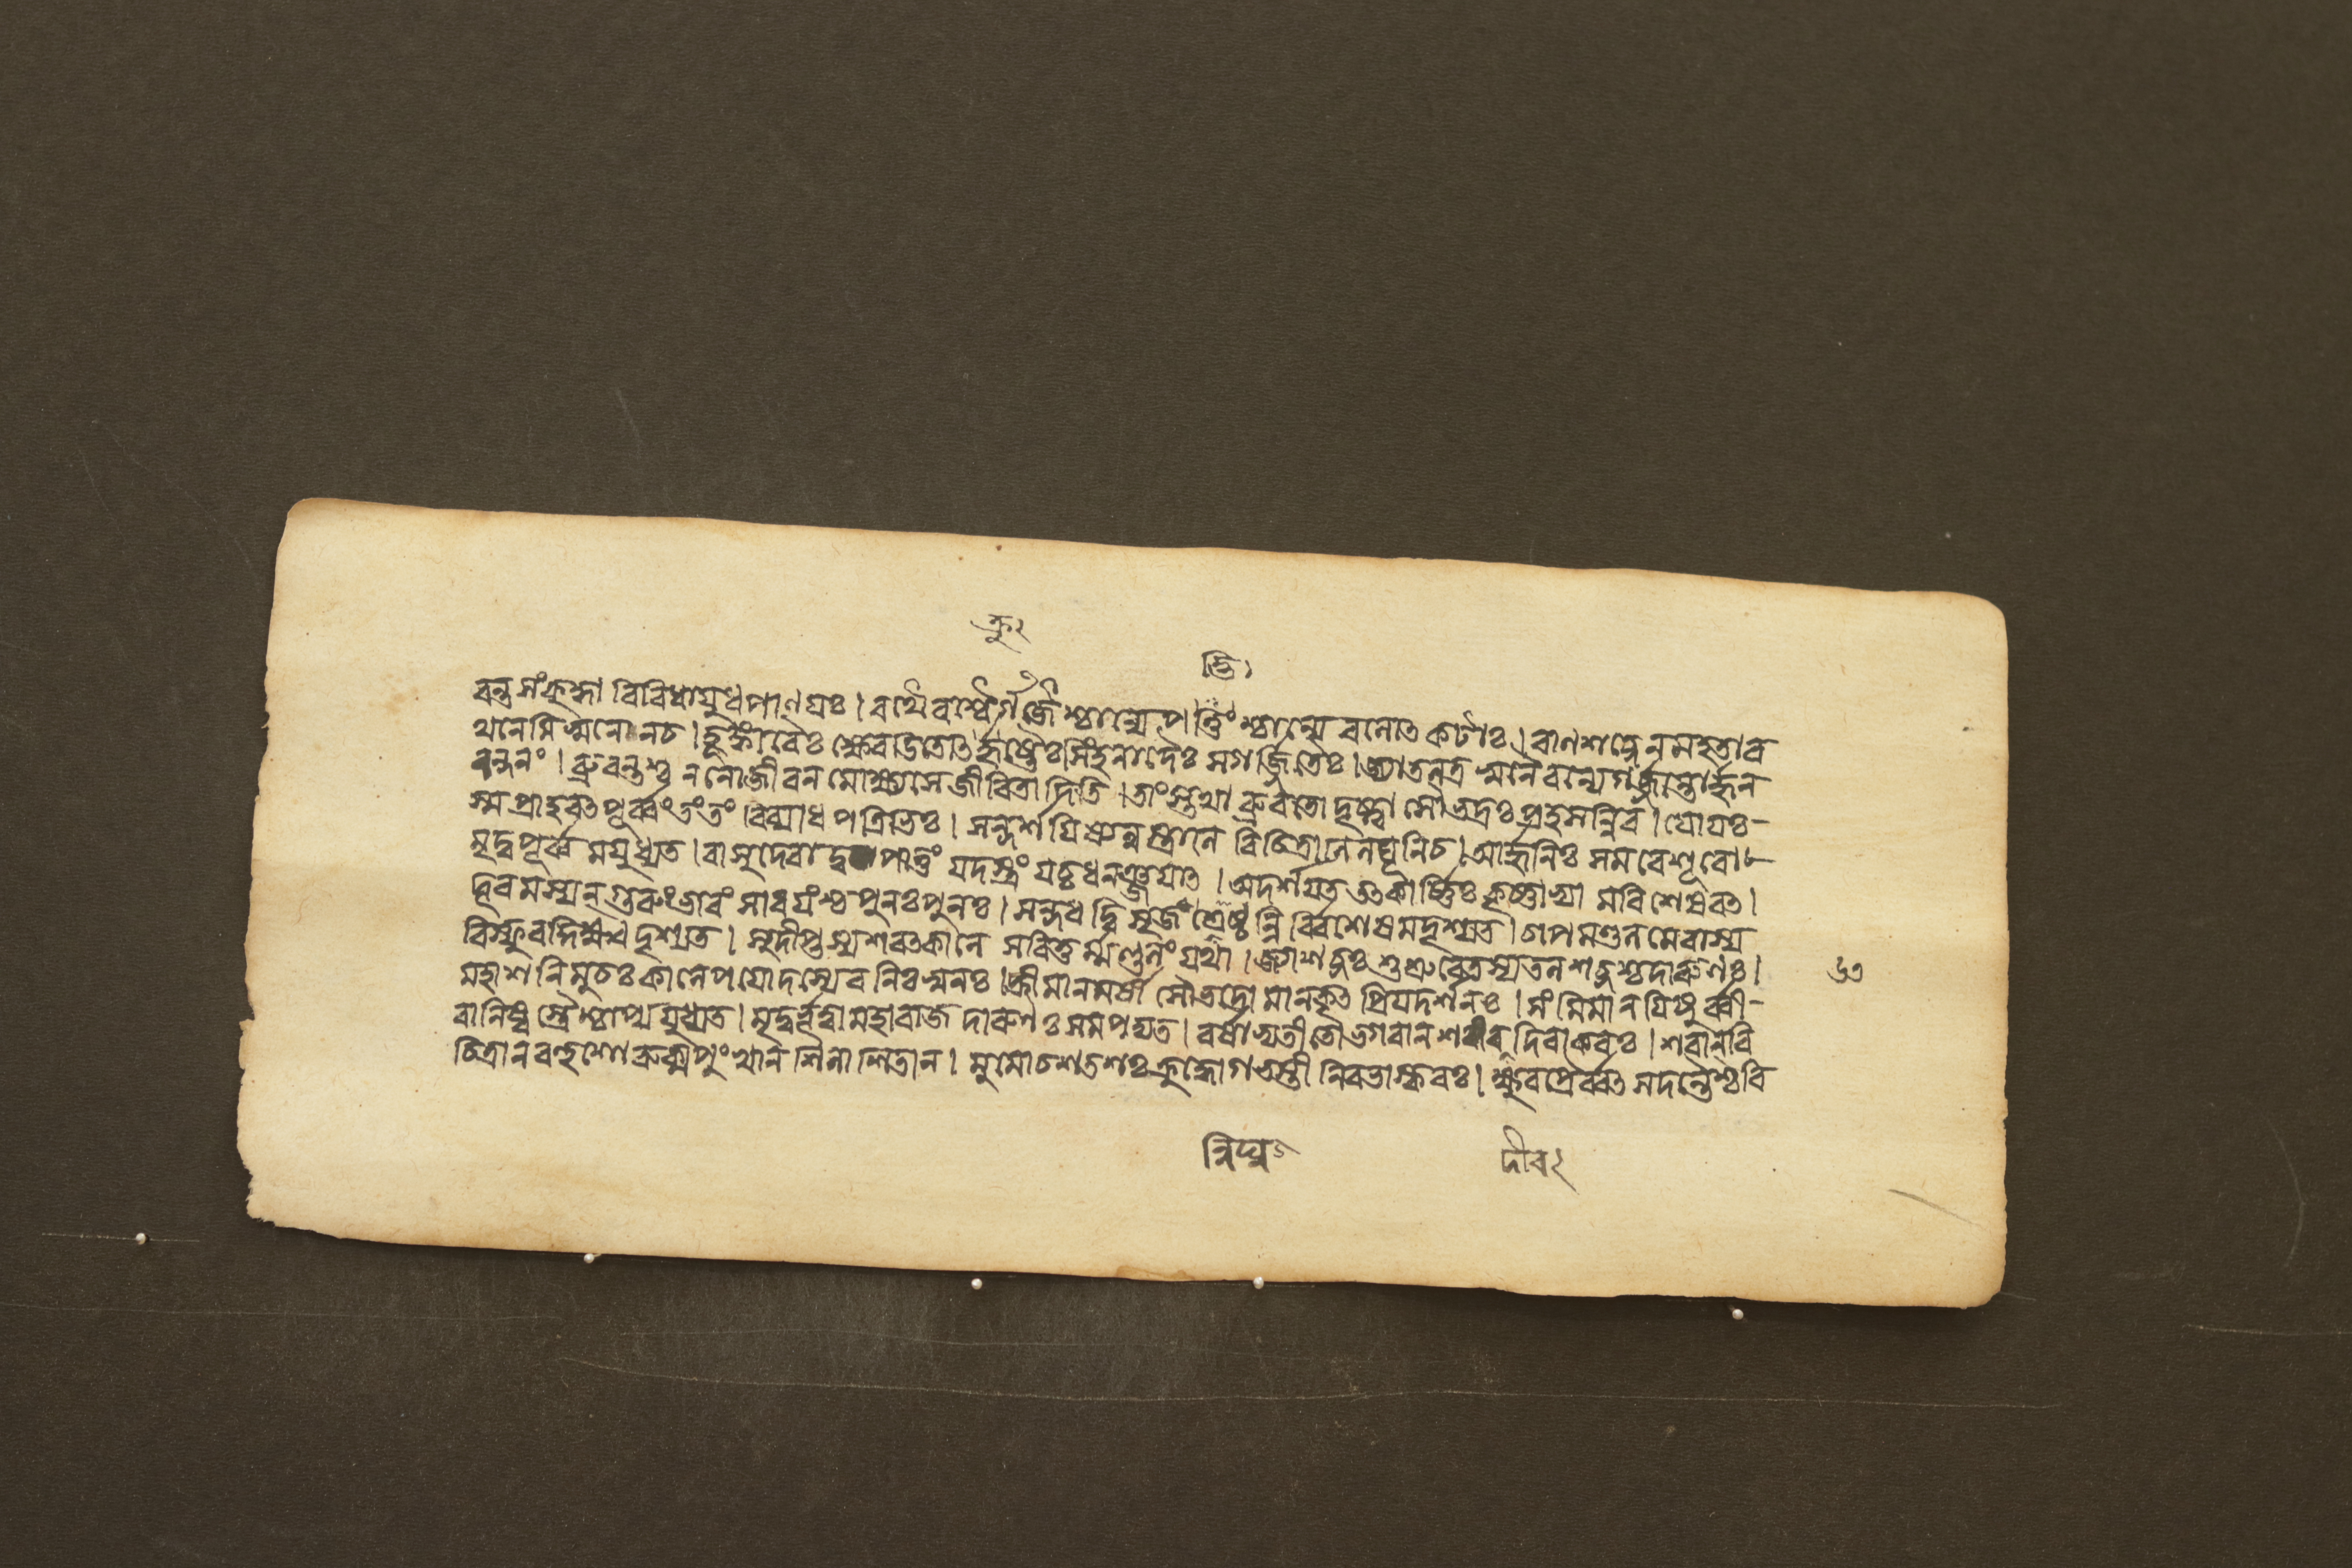 ক্রু২
দ্ভি১
বন্ত সংক্রুদ্ধা বিবিধায়ুধপাণয়ঃ। রথৈরশ্বৈর্গর্জৈশ্চান্যে পদ্ভিশ্চান্যে বলোৎকটাঃ। বাণশব্দেন মহতা র
থনেমিস্বনেন চ। হুঙ্কারৈঃ ক্ষ্বেডিতোৎক্রুষ্টৈঃ সিংহনাদৈঃ সগর্জ্জিতৈঃ। জ্যাতলত্র স্বনৈরন্যে গর্জ্জন্তোর্জ্জুন
নন্দনং। ব্রুবন্তশ্চ ন নো জীবন মোক্ষ্যসে জীবিতাদিতি। তাংস্তথা ব্রুবতো দৃষ্ট্বা সৌভদ্রঃ প্রহসন্নিব। যো যঃ-
স্ম প্রাহরৎ পূর্ব্বং তং তং বিব্যাধ পত্রিভিঃ। সন্দর্শযিষ্যন্নস্ত্রানি বিচিত্রাণি লঘূনি চ। আর্জ্জুনিঃ সমরে শূরো
মৃদুপূর্ব্বমযুধ্যত। বাসুদেবাদুপাত্তং যদস্ত্রং যচ্চ ধনঞ্জয়াৎ। অদর্শয়ত তৎকার্ষ্ণিঃ কৃষ্ণাভ্যামবিশেষবৎ।
দূরমস্যন্ গুরুং ভারং সাধয়ংশ্চ পুনঃপুনঃ। সন্দধদ্বিসৃজংশ্চেষূ ন্নির্বিশেষমদৃশ্যত। চাপমণ্ডলমেবাস্য
বিস্ফুরদ্দিক্ষ্বদৃশ্যত। সুদীপ্তস্য শরৎকালে সবিতুর্ম্মণ্ডলং যথা। জ্যাশব্দঃ শুশ্রুবে তস্য তলশব্দশ্চ দারুণঃ।
৬৩
মহাশনিমুচঃ কালে পয়োদস্যেব নিঃস্বনঃ। হ্রীমানমর্ষী সৌভদ্রো মানকৃৎ প্রিয়দর্শনঃ। সংমিমানয়িষুর্ব্বী-
রানিষ্বস্ত্রৈশ্চাপ্যযুধ্যত। মৃদুর্ভূত্বা মহারাজ দারুণঃ সমপদ্যত। বর্ষাভ্যতীতো ভগবান শরদীব দিবাকরঃ। শরান্ বি
চিত্রান বহুশো রুক্মপুংখান শিলাশিতান। মুমোচ শতশঃ ক্রুদ্ধো গভস্তী নিবভাস্করঃ। ক্ষুরপ্রৈর্ব্বৎসদন্তৈশ্চ বি
ন্নিঘু
দীব২